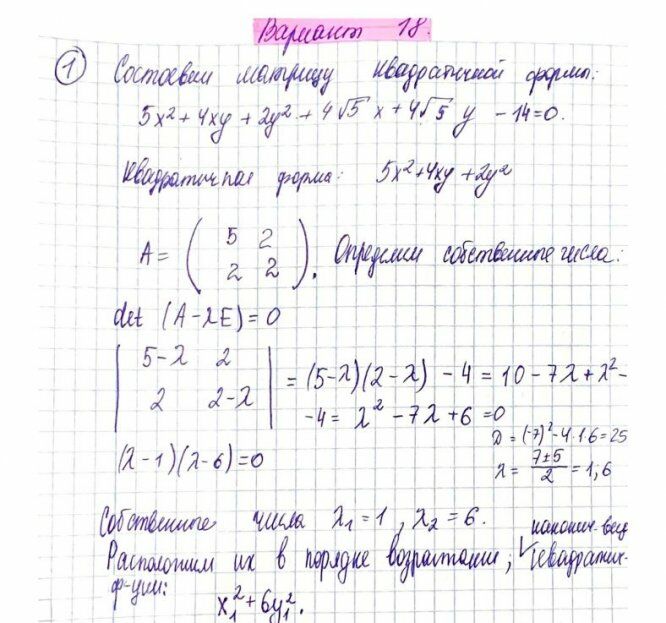 Вариант 18.
1 Составим матрицу квадратичной формы:
5x² + 4xy + 2y² + 4√5 x + 4√5 y - 14 = 0.
Квадратичная форма: 5x² + 4xy + 2y²
A = ( 5 2
2 2 ). Определим собственные числа:
det (A - λE) = 0
| 5-λ 2
2 2-λ | = (5-λ)(2-λ) - 4 = 10 - 7λ + λ² -
- 4 = λ² - 7λ + 6 = 0
D = (-7)² - 4·1·6 = 25
(λ-1)(λ-6) = 0
λ = (7±5)/2 = 1; 6
Собственные числа λ₁ = 1, λ₂ = 6.
Расположим их в порядке возрастания; канонич. вид квадратич.
ф-ции:
x₁² + 6y₁².